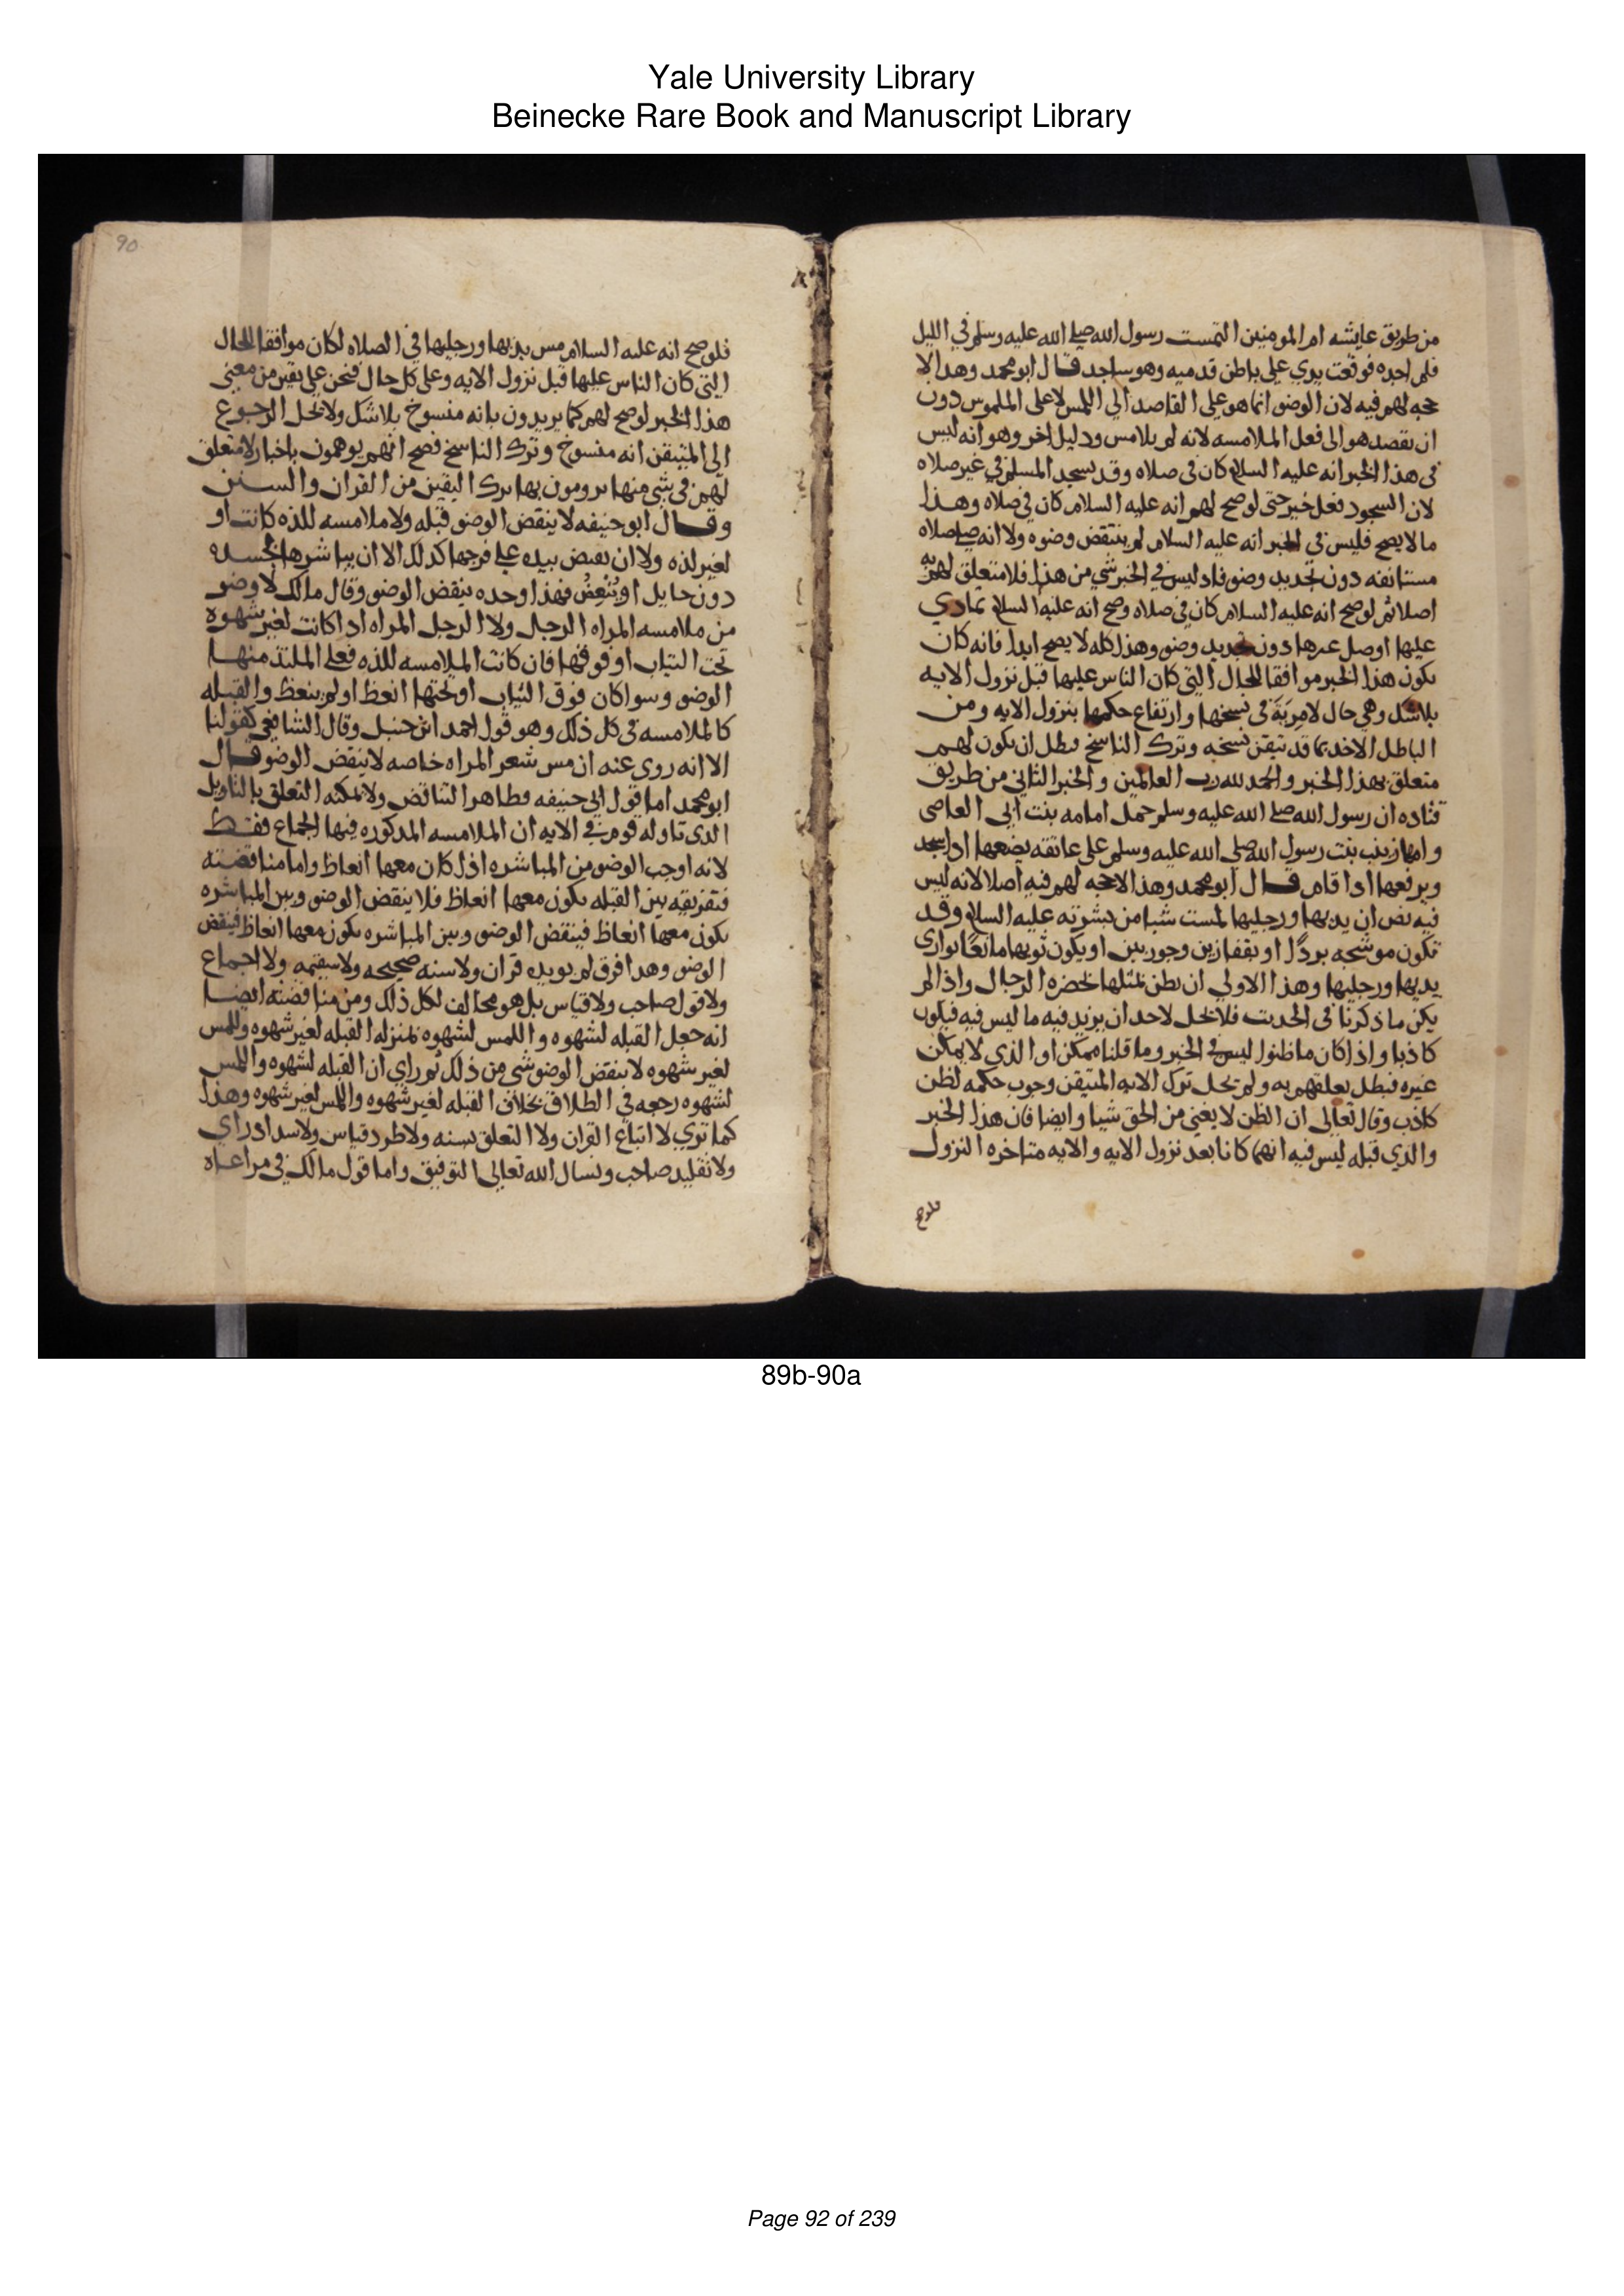 Yale University Library
Beinecke Rare Book and Manuscript Library
من طريق عايشه ام المومنين التمست رسول الله صلى الله عليه وسلم في الليل
فلم اجده فوقعت يدي على باطن قدميه وهو ساجد قال ابو محمد وهذا لا
حجه لهم فيه لان الوضو انما هو على القاصد الي اللمس لا على الملموس دون
ان يقصد هو الى فعل الملامسه لانه لم يلامس ودليل اخر وهو انه ليس
في هذا الخبر انه عليه السلام كان في صلاه وقد يسجد المسلم في غير صلاه
لان السجود فعل خير حتى لو صح لهم انه عليه السلام كان في صلاه وهذا
ما لا يصح فليس في الخبر انه عليه السلام لم ينتقض وضوه ولا انه صلى صلاه
مستانفه دون تجديد وضو فاذ ليس في الخبر شي من هذا فلا متعلق لهم به
اصلا ثم لو صح انه عليه السلام كان في صلاه وصح انه عليه السلام تمادي
عليها او صلى غيرها دون تجديد وضو وهذا كله لا يصح ابدا فانه كان
يكون هذا الخبر موافقا للحال التي كان الناس عليها قبل نزول الايه
بلا شك وهي حال لا مرية في نسخها وارتفاع حكمها بنزول الايه ومن
الباطل الاخذ بما قد تيقن نسخه وترك الناسخ فبطل ان يكون لهم
متعلق بهذا الخبر والحمد لله رب العالمين والخبر الثاني من طريق
قتاده ان رسول الله صلى الله عليه وسلم حمل امامه بنت ابي العاصى
وامها زينب بنت رسول الله صلى الله عليه وسلم على عاتقه يضعها اذا سجد
ويرفعها اذا قام قال ابو محمد وهذا لا حجه لهم فيه اصلا لانه ليس
فيه نص ان يديها ورجليها لمست شيا من بشرته عليه السلام وقد
تكون موشحه بردًا او بقفازين وجوربين او يكون ثوبها مانعًا يواري
يديها ورجليها وهذا الاولي ان يظن بمثلها بحضره الرجال واذا لم
يكن ما ذكرنا في الحديث فلا يحل لاحد ان يزيد فيه ما ليس فيه فيكون
كاذبا واذا كان ما ظنوا ليس في الخبر وما قلنا ممكن او الذي لا يمكن
غيره فبطل تعلقهم به ولم يحل ترك الايه المتيقن وجوب حكمه لظن
كاذب وقال تعالى ان الظن لا يغني من الحق شيا وايضا فان هذا الخبر
والذي قبله ليس فيه انهما كانا بعد نزول الايه والايه متاخره النزول
فلو صح
90
فلو صح انه عليه السلام مس يديها ورجليها في الصلاه لكان موافقا للحال
التي كان الناس عليها قبل نزول الايه وعلى كل حال فنحن على يقين من معنى
هذا الخبر لو صح لهم كما يريدون بانه منسوخ بلا شك ولا يحل الرجوع
الى المتيقن انه منسوخ وترك الناسخ فصح انهم يوهمون باخبار لا متعلق
لهم في شي منها يرومون بها ترك اليقين من القران والسنن
وقال ابو حنيفه لا ينقض الوضو قبله ولا ملامسه للذه كانت او
لغير لذه ولا ان يقبض بيده على فرجها كذلك الا ان يباشرها بجسده
دون حايل او يُنْعِظُ فهذا وحده ينقض الوضو وقال مالك لا وضو
من ملامسه المراه الرجل ولا الرجل المراه اذا كانت لغير شهوه
تحت الثياب او فوقها فان كانت الملامسه للذه فعلى الملتذ منهما
الوضو وسوا كان فوق الثياب او تحتها انعظ او لم ينعظ والقبله
كالملامسه في كل ذلك وهو قول احمد ابن حنبل وقال الشافعي كقولنا
الا انه روي عنه ان مس شعر المراه خاصه لا ينقض الوضو قال
ابو محمد اما قول ابي حنيفه فظاهر التناقض ولا يمكنه التعلق بالتاويل
الذي تاوله قوم في الايه ان الملامسه المذكوره فيها الجماع فقط
لانه اوجب الوضو من المباشره اذا كان معها انعاظ واما مناقضته
فتفريقه بين القبله يكون معها انعاظ فلا ينقض الوضو وبين المباشره
يكون معها انعاظ فينقض الوضو وبين المباشره يكون معها انعاظ فينقض
الوضو وهذا فرق لم يويده قران ولا سنه صحيحه ولا سقيمه ولا اجماع
ولا قول صاحب ولا قياس بل هو مخالف لكل ذلك ومن مناقضته ايضا
انه جعل القبله لشهوه واللمس لشهوه بمنزله القبله لغير شهوه واللمس
لغير شهوه لا ينقض الوضو شي من ذلك ثم راي ان القبله لشهوه واللمس
لشهوه رجعه في الطلاق بخلاف القبله لغير شهوه واللمس لغير شهوه وهذا
كما تري لا اتباع القران ولا التعلق بسنه ولا طرد قياس ولا سداد راي
ولا تقليد صاحب ونسال الله تعالى التوفيق واما قول مالك في مراعاه
89b-90a
Page 92 of 239